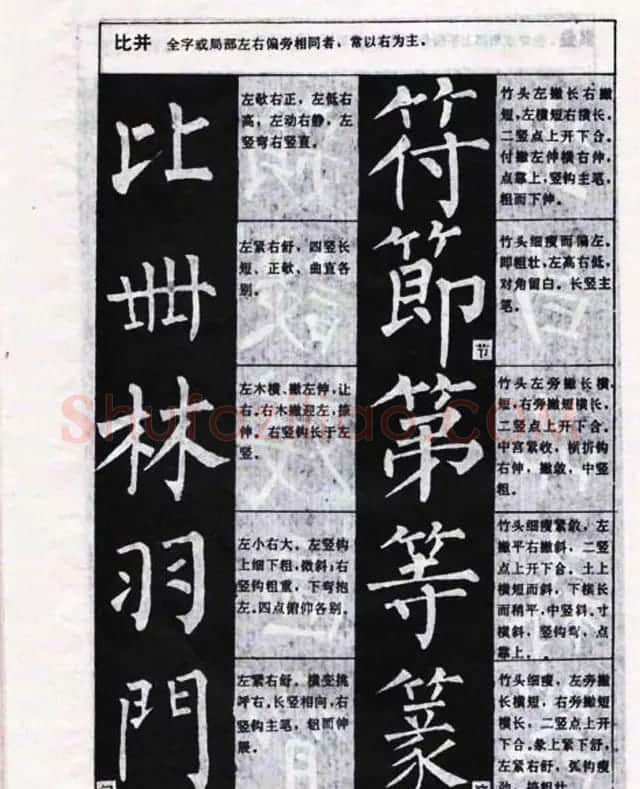 比并 全字或局部左右偏旁相同者，常以右为主。
比
左敧右正，左低右
高，左动右静，左
竖弯右竖直。
冊
左紧右舒，四竖长
短、正敧、曲直各
别。
林
左木横、撇左伸，让
右。右木撇迎左，捺
伸。右竖钩长于左
竖。
羽
左小右大。左竖钩
上细下粗，微斜；右
竖钩粗重，下弯抱
左。四点俯仰各别。
門
左紧右舒。横变挑
呼右。长竖相向，右
竖钩主笔，粗而伸
展。
符
竹头左撇长右撇
短，左横短右横长，
二竖点上开下合。
付撇左伸横右伸，
点靠上，竖钩主笔，
粗而下伸。
節
节
竹头细瘦而偏左。
即粗壮，左高右低，
对角留白。长竖主
笔。
第
竹头左旁撇长横
短，右旁撇短横长，
二竖点上开下合。
中宫紧收，横折钩
右伸，撇敛，中竖
粗。
等
竹头细瘦紧敛，左
撇平右撇斜，二竖
点上开下合。土上
横短而斜，下横长
而稍平，中竖斜。寸
横斜，竖钩弯，点
靠上。
篆
竹头细瘦，左旁撇
长横短，右旁撇短
横长，二竖点上开
下合。彖上紧下舒，
左紧右舒，弧钩瘦